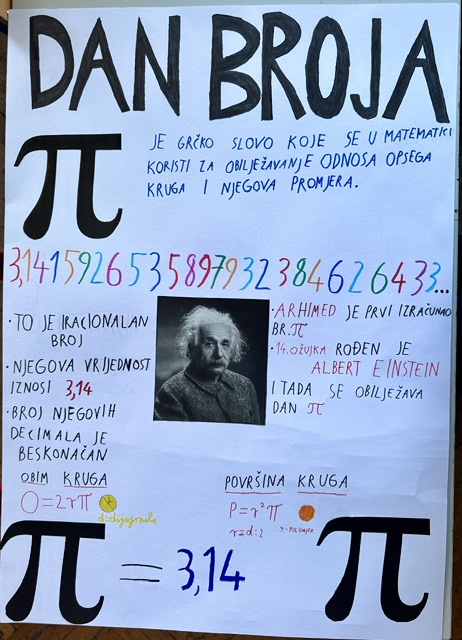 DAN BROJA
π
JE GRČKO SLOVO KOJE SE U MATEMATICI
KORISTI ZA OBILJEŽAVANJE ODNOSA OPSEGA
KRUGA I NJEGOVA PROMJERA.
3,1415926535897932384626433...
·TO JE IRACIONALAN
BROJ
·NJEGOVA VRIJEDNOST
IZNOSI 3,14
·BROJ NJEGOVIH
DECIMALA JE
BESKONAČAN
·ARHIMED JE PRVI IZRAČUNAO
BR.π
·14.OŽUJKA ROĐEN JE
ALBERT EINSTEIN
I TADA SE OBILJEŽAVA
DAN π
OBIM KRUGA
O=2rπ
d=dijagonala
POVRŠINA KRUGA
P=r²π
r=d:2
r-POLUMJER
π = 3,14
π